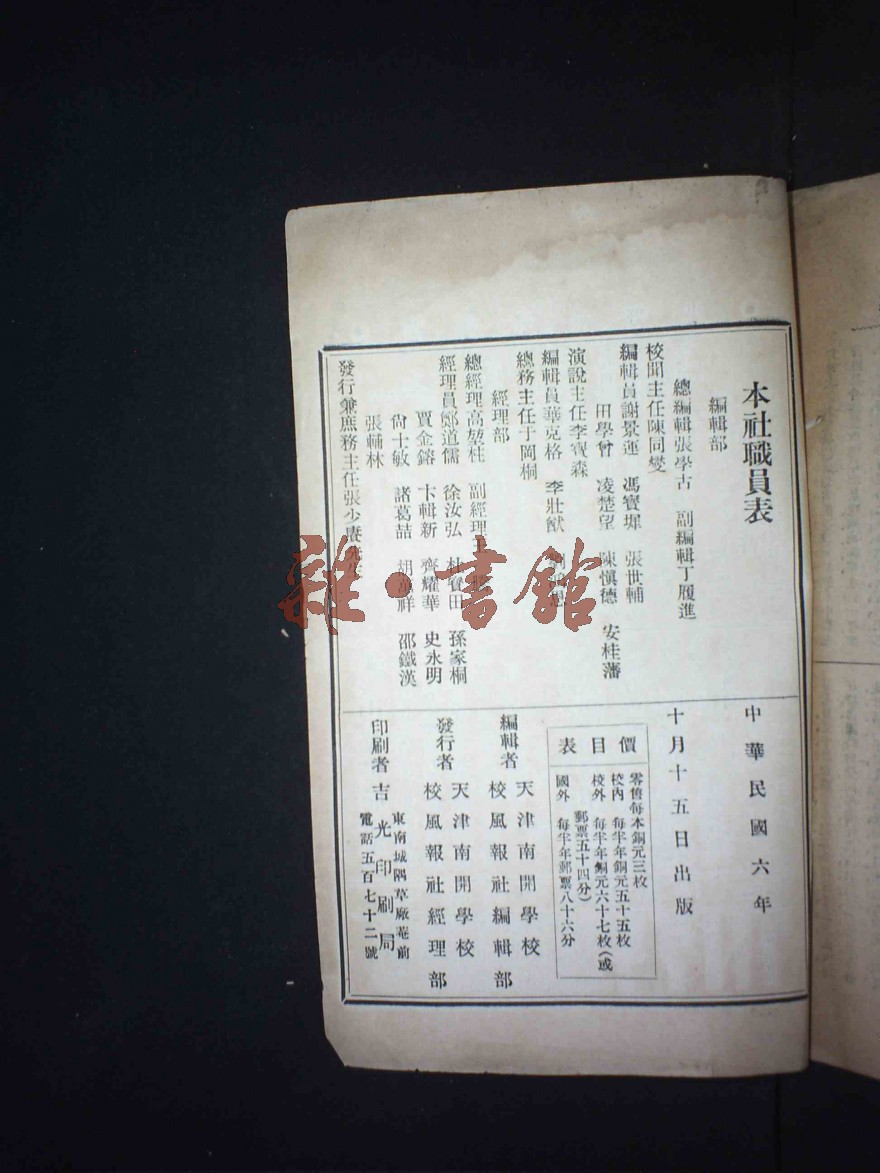 本社職員表
編輯部
總編輯張學古 副編輯丁履進
校聞主任陳同燮
編輯員謝景運 馮寶墀 張世輔
田學曾 凌楚望 陳愼德 安桂藩
演說主任李寶森
編輯員華克格 李壯猷
總務主任于岡桐
經理部
總經理高堃桂 副經理王
經理員鄭道儒 徐汝弘 杜寶田 孫家桐
賈金鎔 卞輯新 齊耀華 史永明
尙士敏 諸葛喆 胡 祥 邵鐵漢
張輔林
發行兼庶務主任張少賡先生
中華民國六年
十月十五日出版
價目表
零售每本銅元三枚
校內 每半年銅元五十五枚
校外 每半年銅元六十七枚(或
郵票五十四分)
國外 每半年郵票八十六分
編輯者 天津南開學校
校風報社編輯部
發行者 天津南開學校
校風報社經理部
印刷者 吉光印刷局
東南城隅草廠菴前
電話五百七十二號
雜·書館